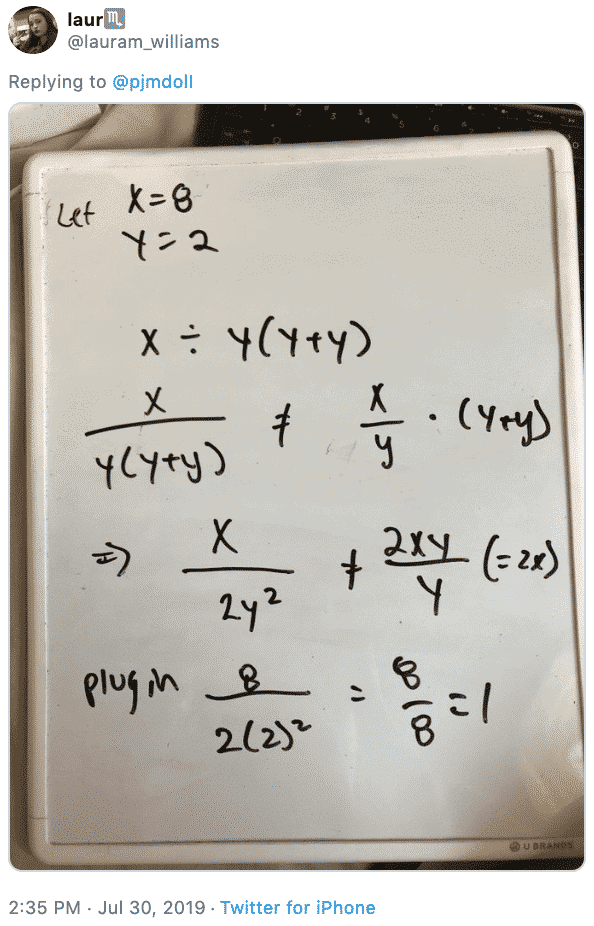 laur♏
@lauram_williams
Replying to @pjmdoll
Let x=8
y=2
x ÷ y(y+y)
x/y(y+y) ≠ x/y · (y+y)
⇒ x/2y² ≠ 2xy/y (=2x)
plug in 8/2(2)² = 8/8 = 1
U BRANDS
2:35 PM · Jul 30, 2019 · Twitter for iPhone